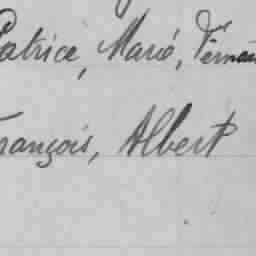 Patrice, Marié, Fernan
François, Albert